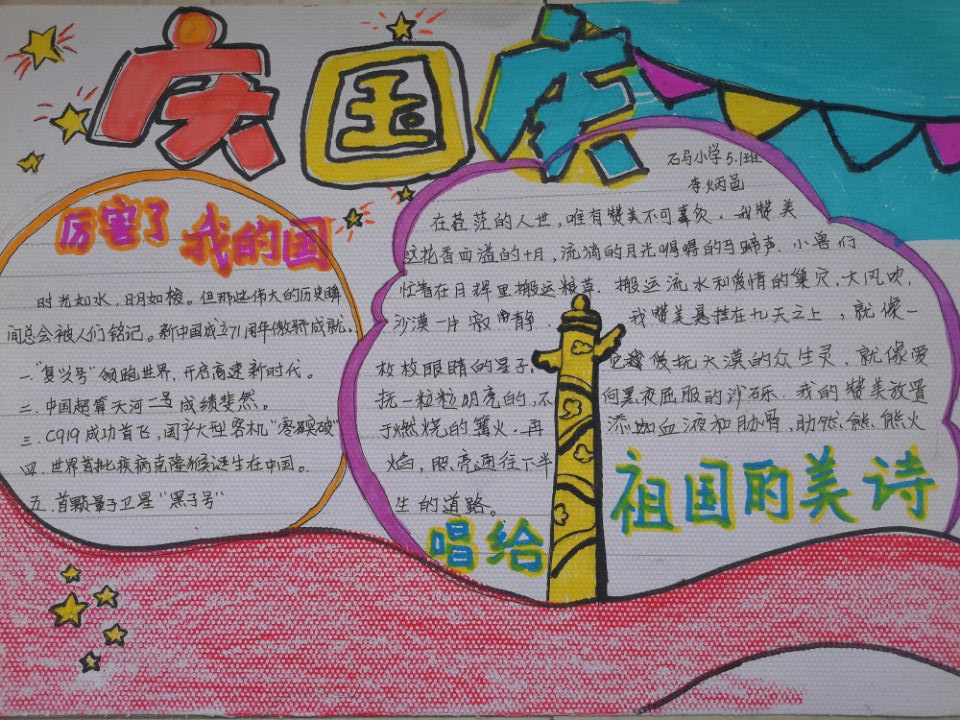 庆国庆
厉害了 我的国
时光如水，日月如梭。但那些伟大的历史瞬
间总会被人们铭记。新中国成立71周年傲骄成就。
一."复兴号"领跑世界，开启高速新时代。
二.中国超算天河二号成绩斐然。
三.C919成功首飞，国产大型客机"零突破"
四.世界首批疾病克隆猴诞生在中国。
五.首颗量子卫星"黑子号"
石马小学5.1班
李炳邑
在苍茫的人世，唯有赞美不可辜负．我赞美
这花香四溢的十月，流淌的月光嘚嘚的马蹄声．小兽们
忙着在月辉里搬运粮草．搬运流水和爱情的巢穴．大风吹，
沙漠一片寂静．我赞美悬挂在九天之上，就像一
枚枚眼睛的星子，它在爱抚大漠的众生灵．就像爱
抚一粒粒明亮的，不向黑夜屈服的沙砾．我的赞美放置
于燃烧的篝火．再添加血液和肋骨，助燃熊熊火
焰，照亮通往下半
生的道路。
唱给祖国的美诗